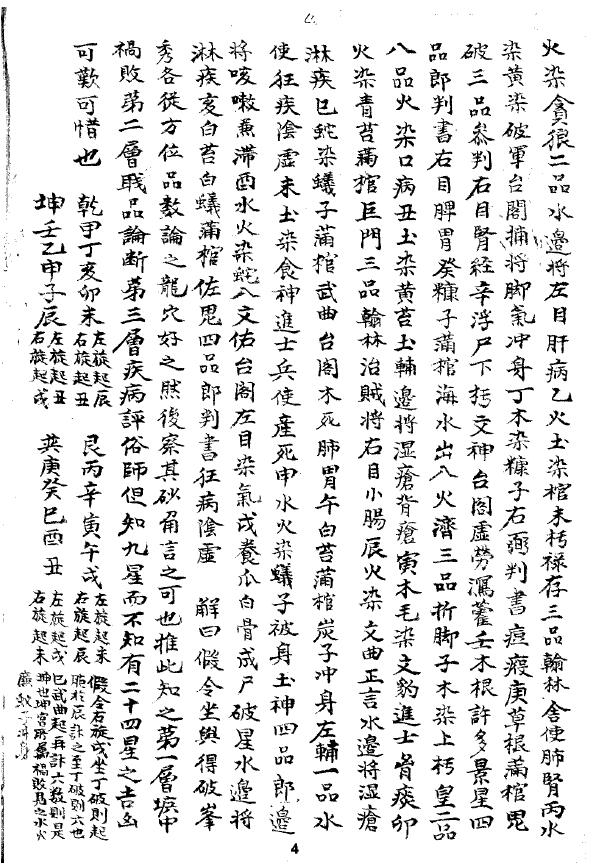 火染貪狼二品水邊將左目肝病乙火土染棺未朽祿存三品翰林舍使肺腎丙水
染黃染破軍台閣捕將脚氣冲身丁木染糠子右弼判書痘瘦庚草根滿棺毘
破三品叅判右目腎経辛浮尸下朽文神台閣虛勞瀉藿壬木根許多景星四
品郎判書右目脾胃癸糠子滿棺海水出入火濟三品折脚子木染上朽皇二品
八品火染口病丑土染黃苔土輔邊將湿瘡背瘡寅木毛染文豹進士胥痰卯
火染青苔滿棺巨門三品翰林治賊將右目小腸辰火染文曲正言水邊將湿瘡
淋疾巳蛇染蟻子滿棺武曲台閣木死肺胃午白苔滿棺炭子冲身左輔一品水
使狂疾陰虛未土染食神進士兵使産死申水火染蟻子被身土神四品郎邊
將咳嗽熏滯酉水火染蛇入文佑台閣左目染氣戌養瓜白骨成尸破星水邊將
淋疾亥白苔白蟻滿棺佐毘四品郎判書狂病陰虛 解曰假令坐與得破峯
秀各從方位品數論之龍穴好之然後察其砂角言之可也推此知之第一層壙中
禍敗第二層職品論断第三層疾病評俗師但知九星而不知有二十四星之吉凶
可歎可惜也
乾甲丁亥卯未 左旋起辰 右旋起丑
艮丙辛寅午戌 左旋起未 右旋起辰
坤壬乙申子辰 左旋起丑 右旋起戌
巽庚癸巳酉丑 左旋起戌 右旋起未
假令右旋戌坐丁破則起
辰計之至丁破則六也
巳武曲起再計六数則是
禍敗爲之水火
4